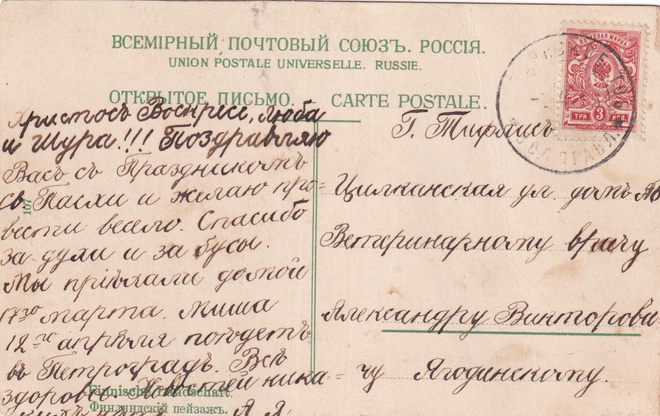 ВСЕМІРНЫЙ ПОЧТОВЫЙ СОЮЗЪ. РОССІЯ.
UNION POSTALE UNIVERSELLE. RUSSIE.
ОТКРЫТОЕ ПИСЬМО.
CARTE POSTALE.
Христосъ Воскресъ, Люба
и Шура!!! Поздравляю
Васъ съ Праздникомъ
Св Пасхи и желаю про-
вести весело. Спасибо
за духи и за бусы.
Мы пріѣхали домой
17го марта. Миша
12го апрѣля поѣдетъ
въ Петроградъ. Всѣ
здоровы. Новостей ника-
Finnische Landschaft.
Финляндскій пейзажъ.
Г. Тифлисъ
Цилканская ул. домъ №
Ветеринарному врачу
Александру Викторови-
чу Ягодинскому
ПОЧТОВАЯ МАРКА
3
ТРИ КОП.